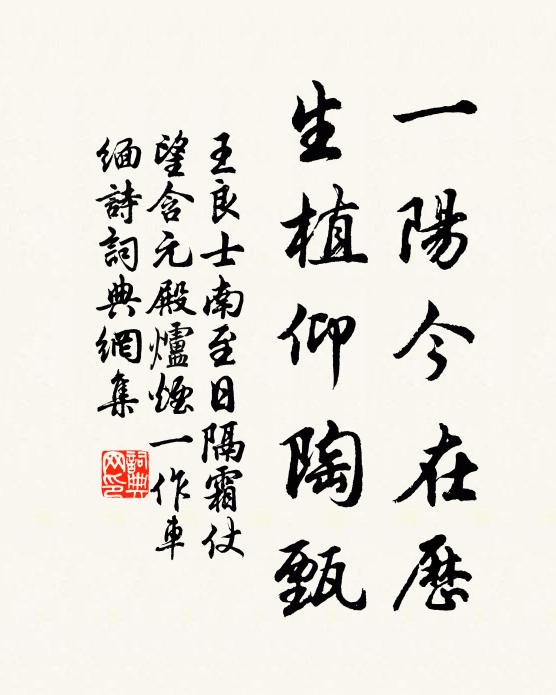 一陽今在歷
生植仰陶甄
王良士南至日隔霜仗
望含元殿爐煙一作車
緬詩詞典網集
詞典网印